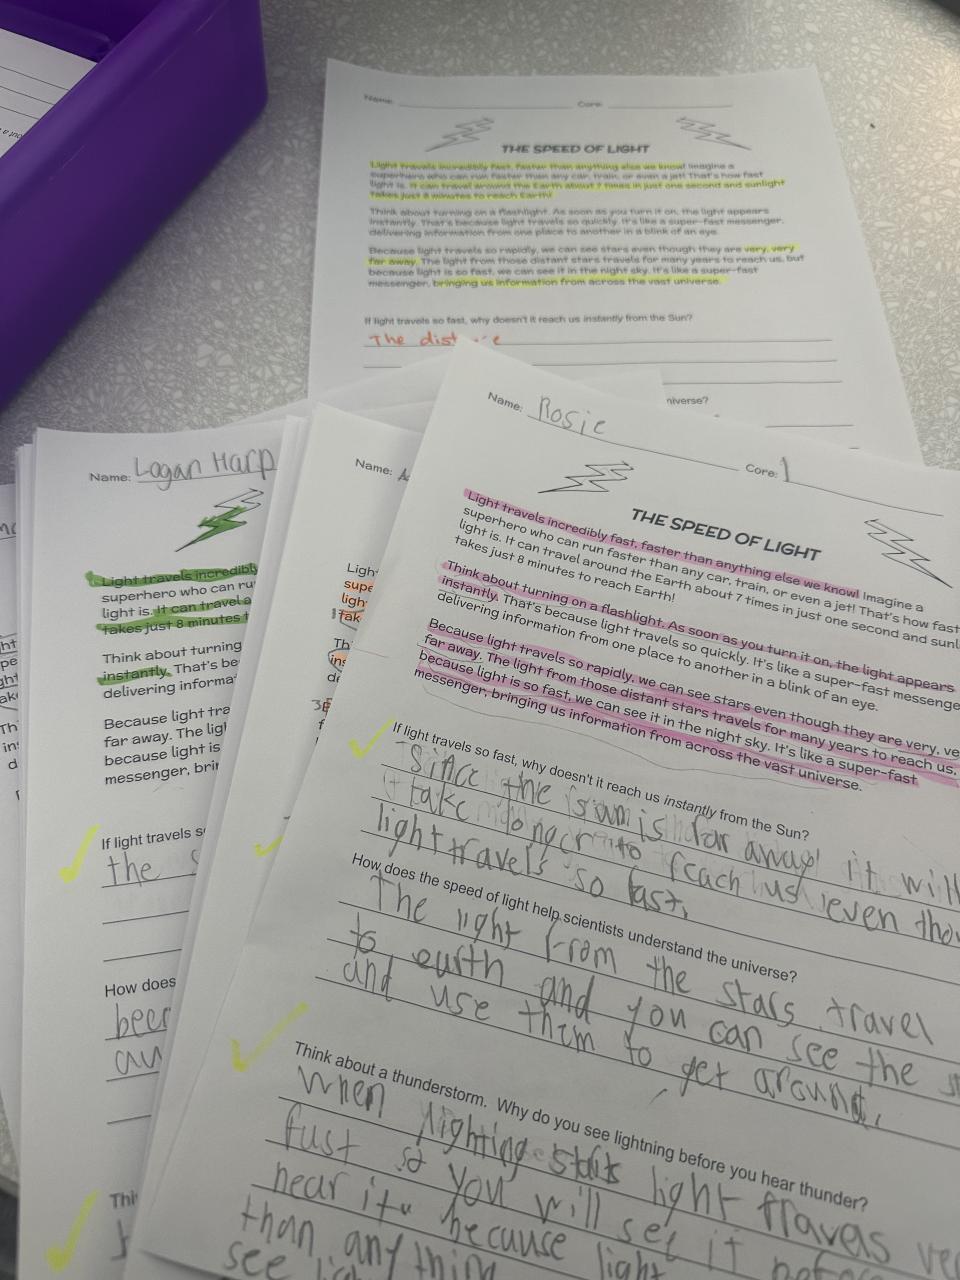 Name:
Core:
THE SPEED OF LIGHT
Light travels incredibly fast, faster than anything else we know! Imagine a
superhero who can run faster than any car, train, or even a jet! That's how fast
light is. It can travel around the Earth about 7 times in just one second and sunlight
takes just 8 minutes to reach Earth!
Think about turning on a flashlight. As soon as you turn it on, the light appears
instantly. That's because light travels so quickly. It's like a super-fast messenger,
delivering information from one place to another in a blink of an eye.
Because light travels so rapidly, we can see stars even though they are very, very
far away. The light from those distant stars travels for many years to reach us, but
because light is so fast, we can see it in the night sky. It's like a super-fast
messenger, bringing us information from across the vast universe.
If light travels so fast, why doesn't it reach us instantly from the Sun?
The
niverse?
Name: Logan Harp
Light travels incredibly
superhero who can ru
light is. It can travel a
takes just 8 minutes t
Think about turning
instantly. That's be
delivering informa
Because light tra
far away. The ligh
because light is
messenger, brin
If light travels s
the
How does
Thi
Name:
Light
supe
ligh
Name: Rosie
Core: 1
THE SPEED OF LIGHT
Light travels incredibly fast, faster than anything else we know! Imagine a
superhero who can run faster than any car, train, or even a jet! That's how fast
light is. It can travel around the Earth about 7 times in just one second and sunl
takes just 8 minutes to reach Earth!
Think about turning on a flashlight. As soon as you turn it on, the light appears
instantly. That's because light travels so quickly. It's like a super-fast messenge
delivering information from one place to another in a blink of an eye.
Because light travels so rapidly, we can see stars even though they are very, ve
far away. The light from those distant stars travels for many years to reach us,
because light is so fast, we can see it in the night sky. It's like a super-fast
messenger, bringing us information from across the vast universe.
If light travels so fast, why doesn't it reach us instantly from the Sun?
Since the sun is far away it will
take longer to reach us even thou
light travels so fast.
How does the speed of light help scientists understand the universe?
The light from the stars travel
to earth and you can see the s
and use them to get around.
Think about a thunderstorm. Why do you see lightning before you hear thunder?
When light travles ve
fast so you will see it
hear it because light
than any thing
see